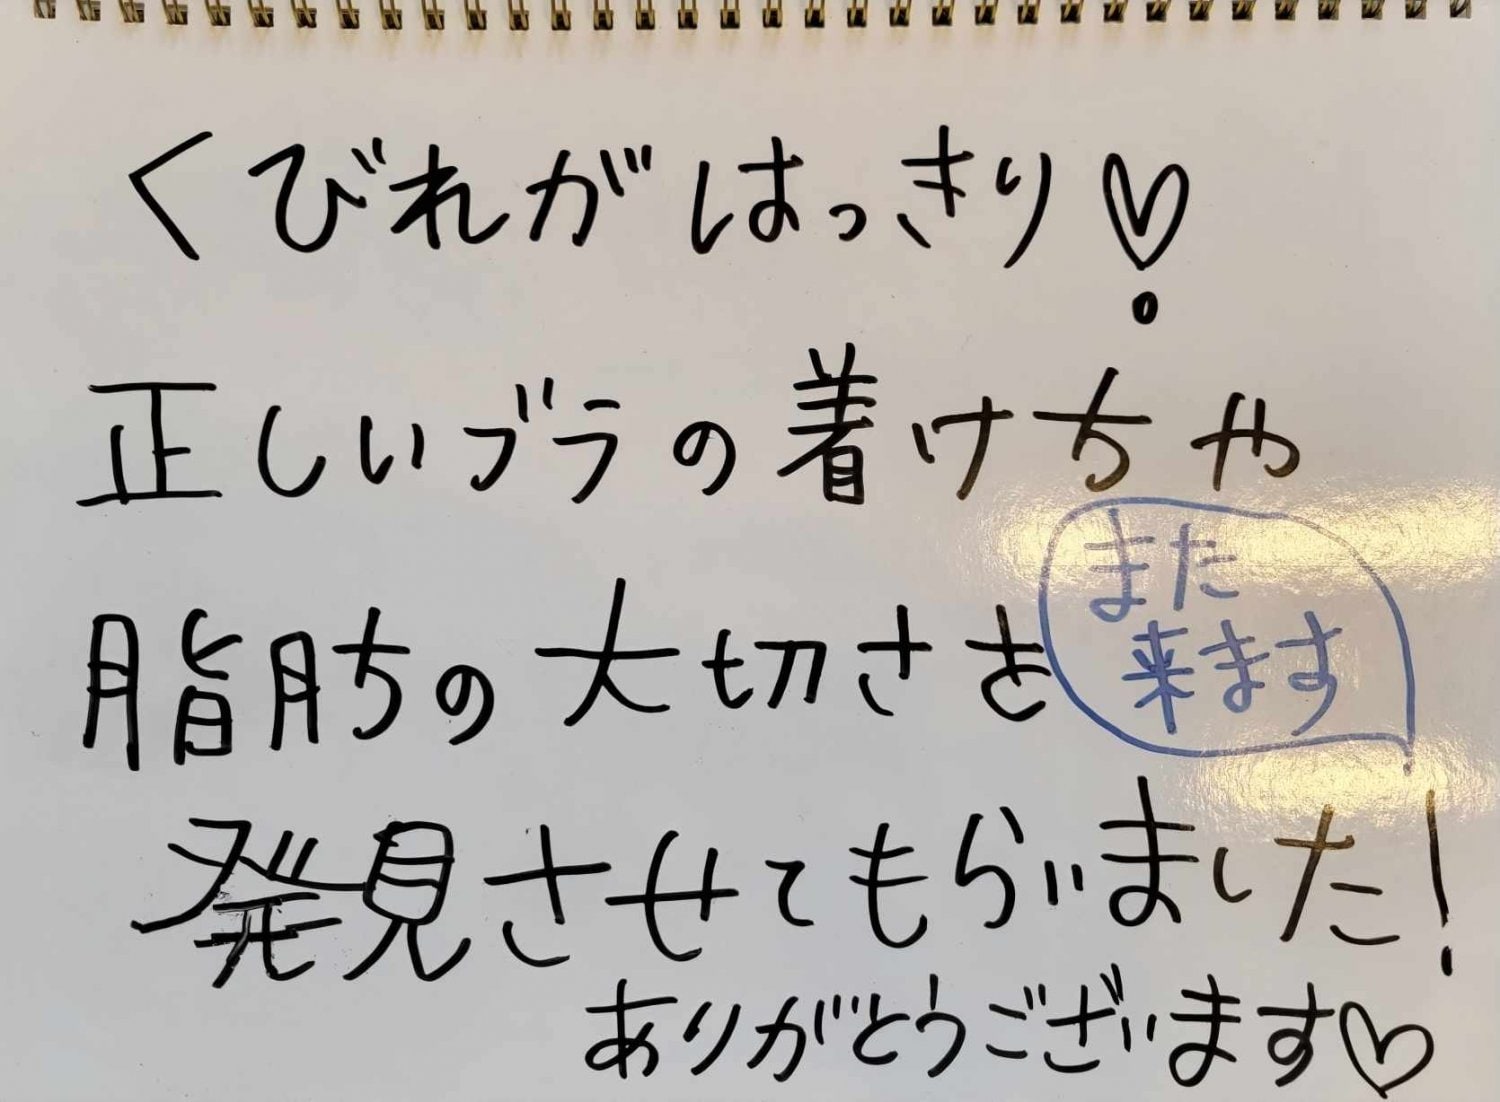 くびれがはっきり♡
正しいブラの着けちや
脂肪の大切さを
また
来ます
発見させてもらいました!
ありがとうございます♡